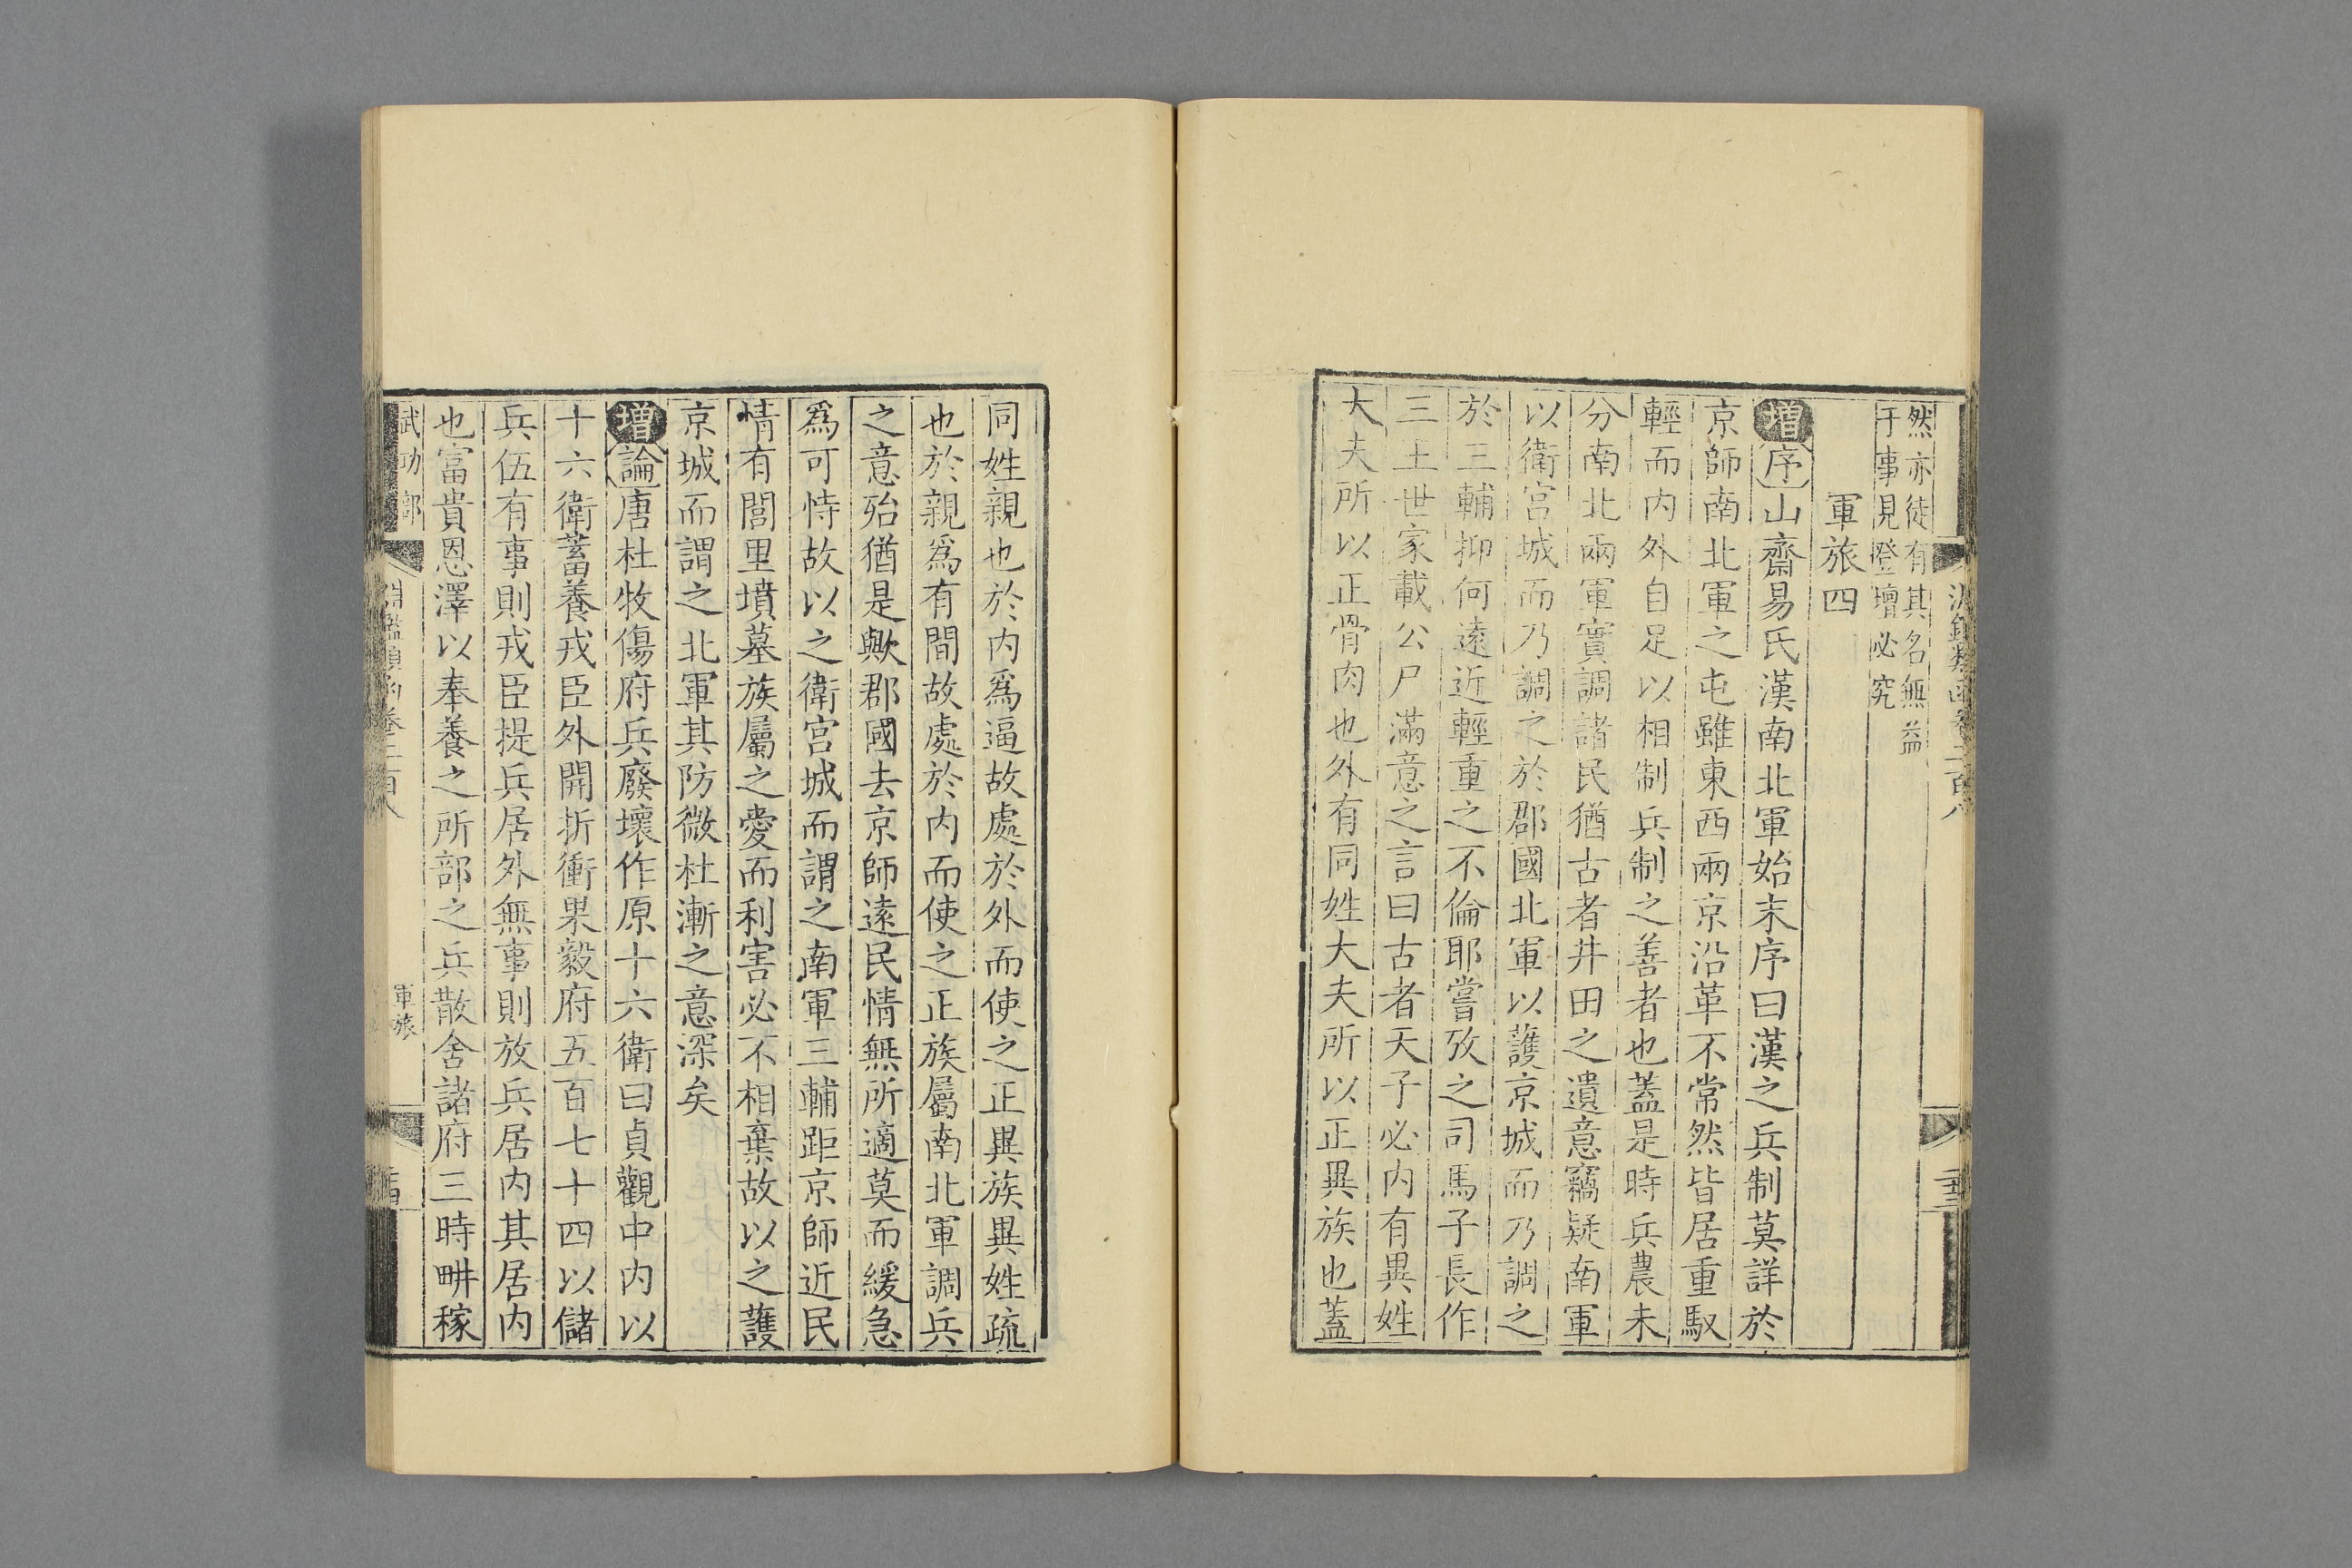 淵鑑類函卷二百八
然亦徒有其名無益
于事見登壇必究
軍旅四
增序山齋易氏漢南北軍始末序曰漢之兵制莫詳於
京師南北軍之屯雖東西兩京沿革不常然皆居重馭
輕而内外自足以相制兵制之善者也蓋是時兵農未
分南北兩軍實調諸民猶古者井田之遺意竊疑南軍
以衛宮城而乃調之於郡國北軍以護京城而乃調之
於三輔抑何遠近輕重之不倫耶嘗攷之司馬子長作
三王世家載公尸滿意之言曰古者天子必内有異姓
大夫所以正骨肉也外有同姓大夫所以正異族也蓋
同姓親也於内爲逼故處於外而使之正異族異姓疏
也於親爲有間故處於内而使之正族屬南北軍調兵
之意殆猶是歟郡國去京師遠民情無所適莫而緩急
爲可恃故以之衛宮城而謂之南軍三輔距京師近民
情有閭里墳墓族屬之愛而利害必不相棄故以之護
京城而謂之北軍其防微杜漸之意深矣
增論唐杜牧傷府兵廢壞作原十六衛曰貞觀中内以
十六衛蓄養戎臣外開折衝果毅府五百七十四以儲
兵伍有事則戎臣提兵居外無事則放兵居内其居内
也富貴恩澤以奉養之所部之兵散舍諸府三時畊稼
武功部
淵鑑類函卷二百八
軍旅